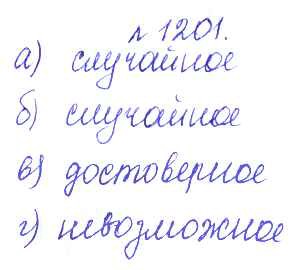 № 1201.
а) случайное
б) случайное
в) достоверное
г) невозможное